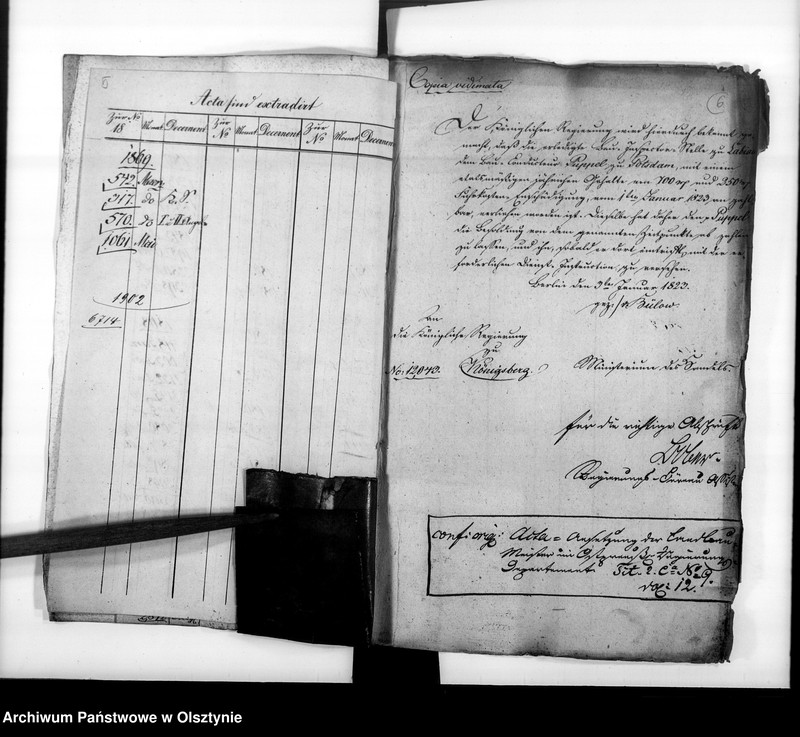 Acta sind extradirt
Zur No
18 Monat Decernent Zur
No Monat Decernent Zur
No Monat Decernent
1869.
572. März
317. do
570. do
1061. Mai
1902
6714.
Copia vidimata
6
Der Königlichen Regierung wird hierdurch bekannt ge-
macht, daß die erledigte Bau-Inspector-Stelle zu Labiau
dem Bau-Conducteur Puppel zu Potsdam, mit einem
etatsmäßigen jährlichen Gehalte von 700 und 250
Fuhrkosten Entschädigung, vom 1ten Januar 1823 an zahl-
bar, verliehen worden ist. Dieselbe hat daher dem Puppel
die Besoldung von dem genannten Zeitpunkte ab zahlen
zu lassen, und ihn, sobald er dort eintrifft, mit der er-
forderlichen Dienst-Instruction zu versehen.
Berlin den 3ten Januar 1823.
gez. v Bülow.
An
die Königliche Regierung
zu
Königsberg.
No: 12043.
Ministerium des Handels.
für die richtige Abschrift
Regierungs-
conf: orig: Acta = Ansetzung der Landbau-
Meister im Ostpreuß: Regierungs
Departement Tit. 2. No 9.
vol: 12.
Archiwum Państwowe w Olsztynie